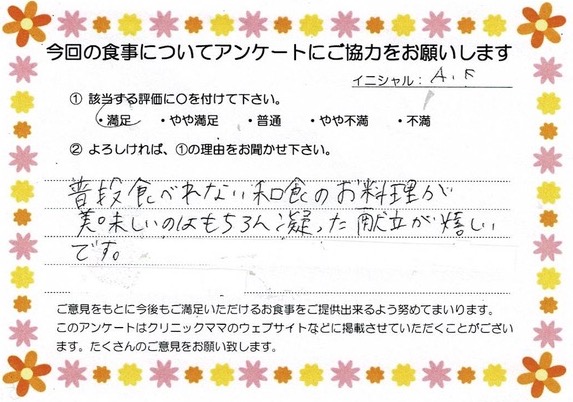 今回の食事についてアンケートにご協力をお願いします
イニシャル: A.F
① 該当する評価に〇を付けて下さい。
・満足 ・やや満足 ・普通 ・やや不満 ・不満
② よろしければ、①の理由をお聞かせ下さい。
普段食べれない和食のお料理が
美味しいのはもちろん凝った献立が嬉しい
です。
ご意見をもとに今後もご満足いただけるお食事をご提供出来るよう努めてまいります。
このアンケートはクリニックママのウェブサイトなどに掲載させていただくことがござい
ます。たくさんのご意見をお願い致します。